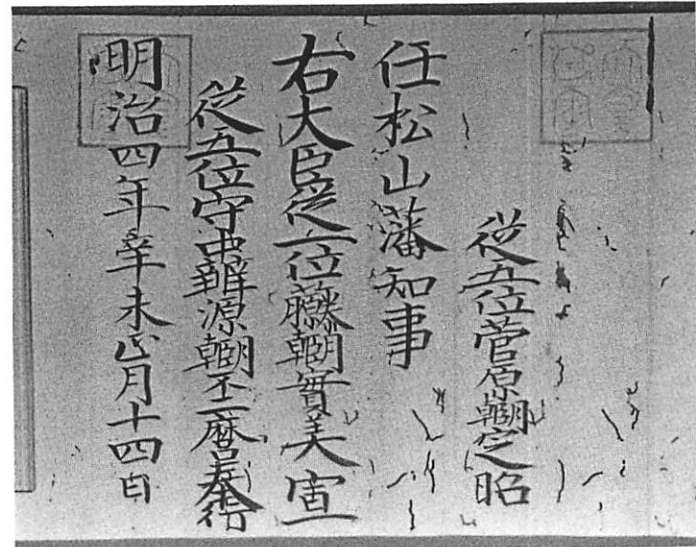 從五位菅原朝臣定昭
任松山藩知事
右大臣從一位藤原朝臣實美宣
從五位守中辨源朝臣不二麿奉行
明治四年辛未正月十四日